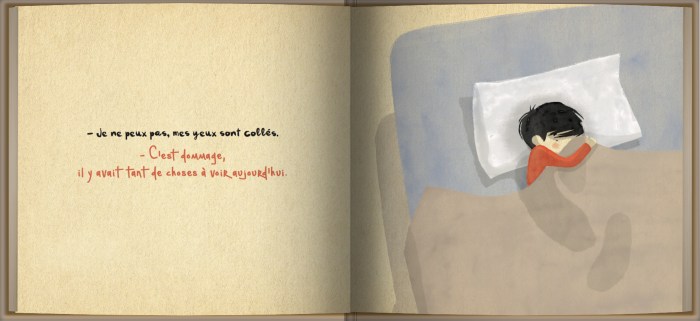 - Je ne peux pas, mes yeux sont collés.
- C'est dommage,
il y avait tant de choses à voir aujourd'hui.